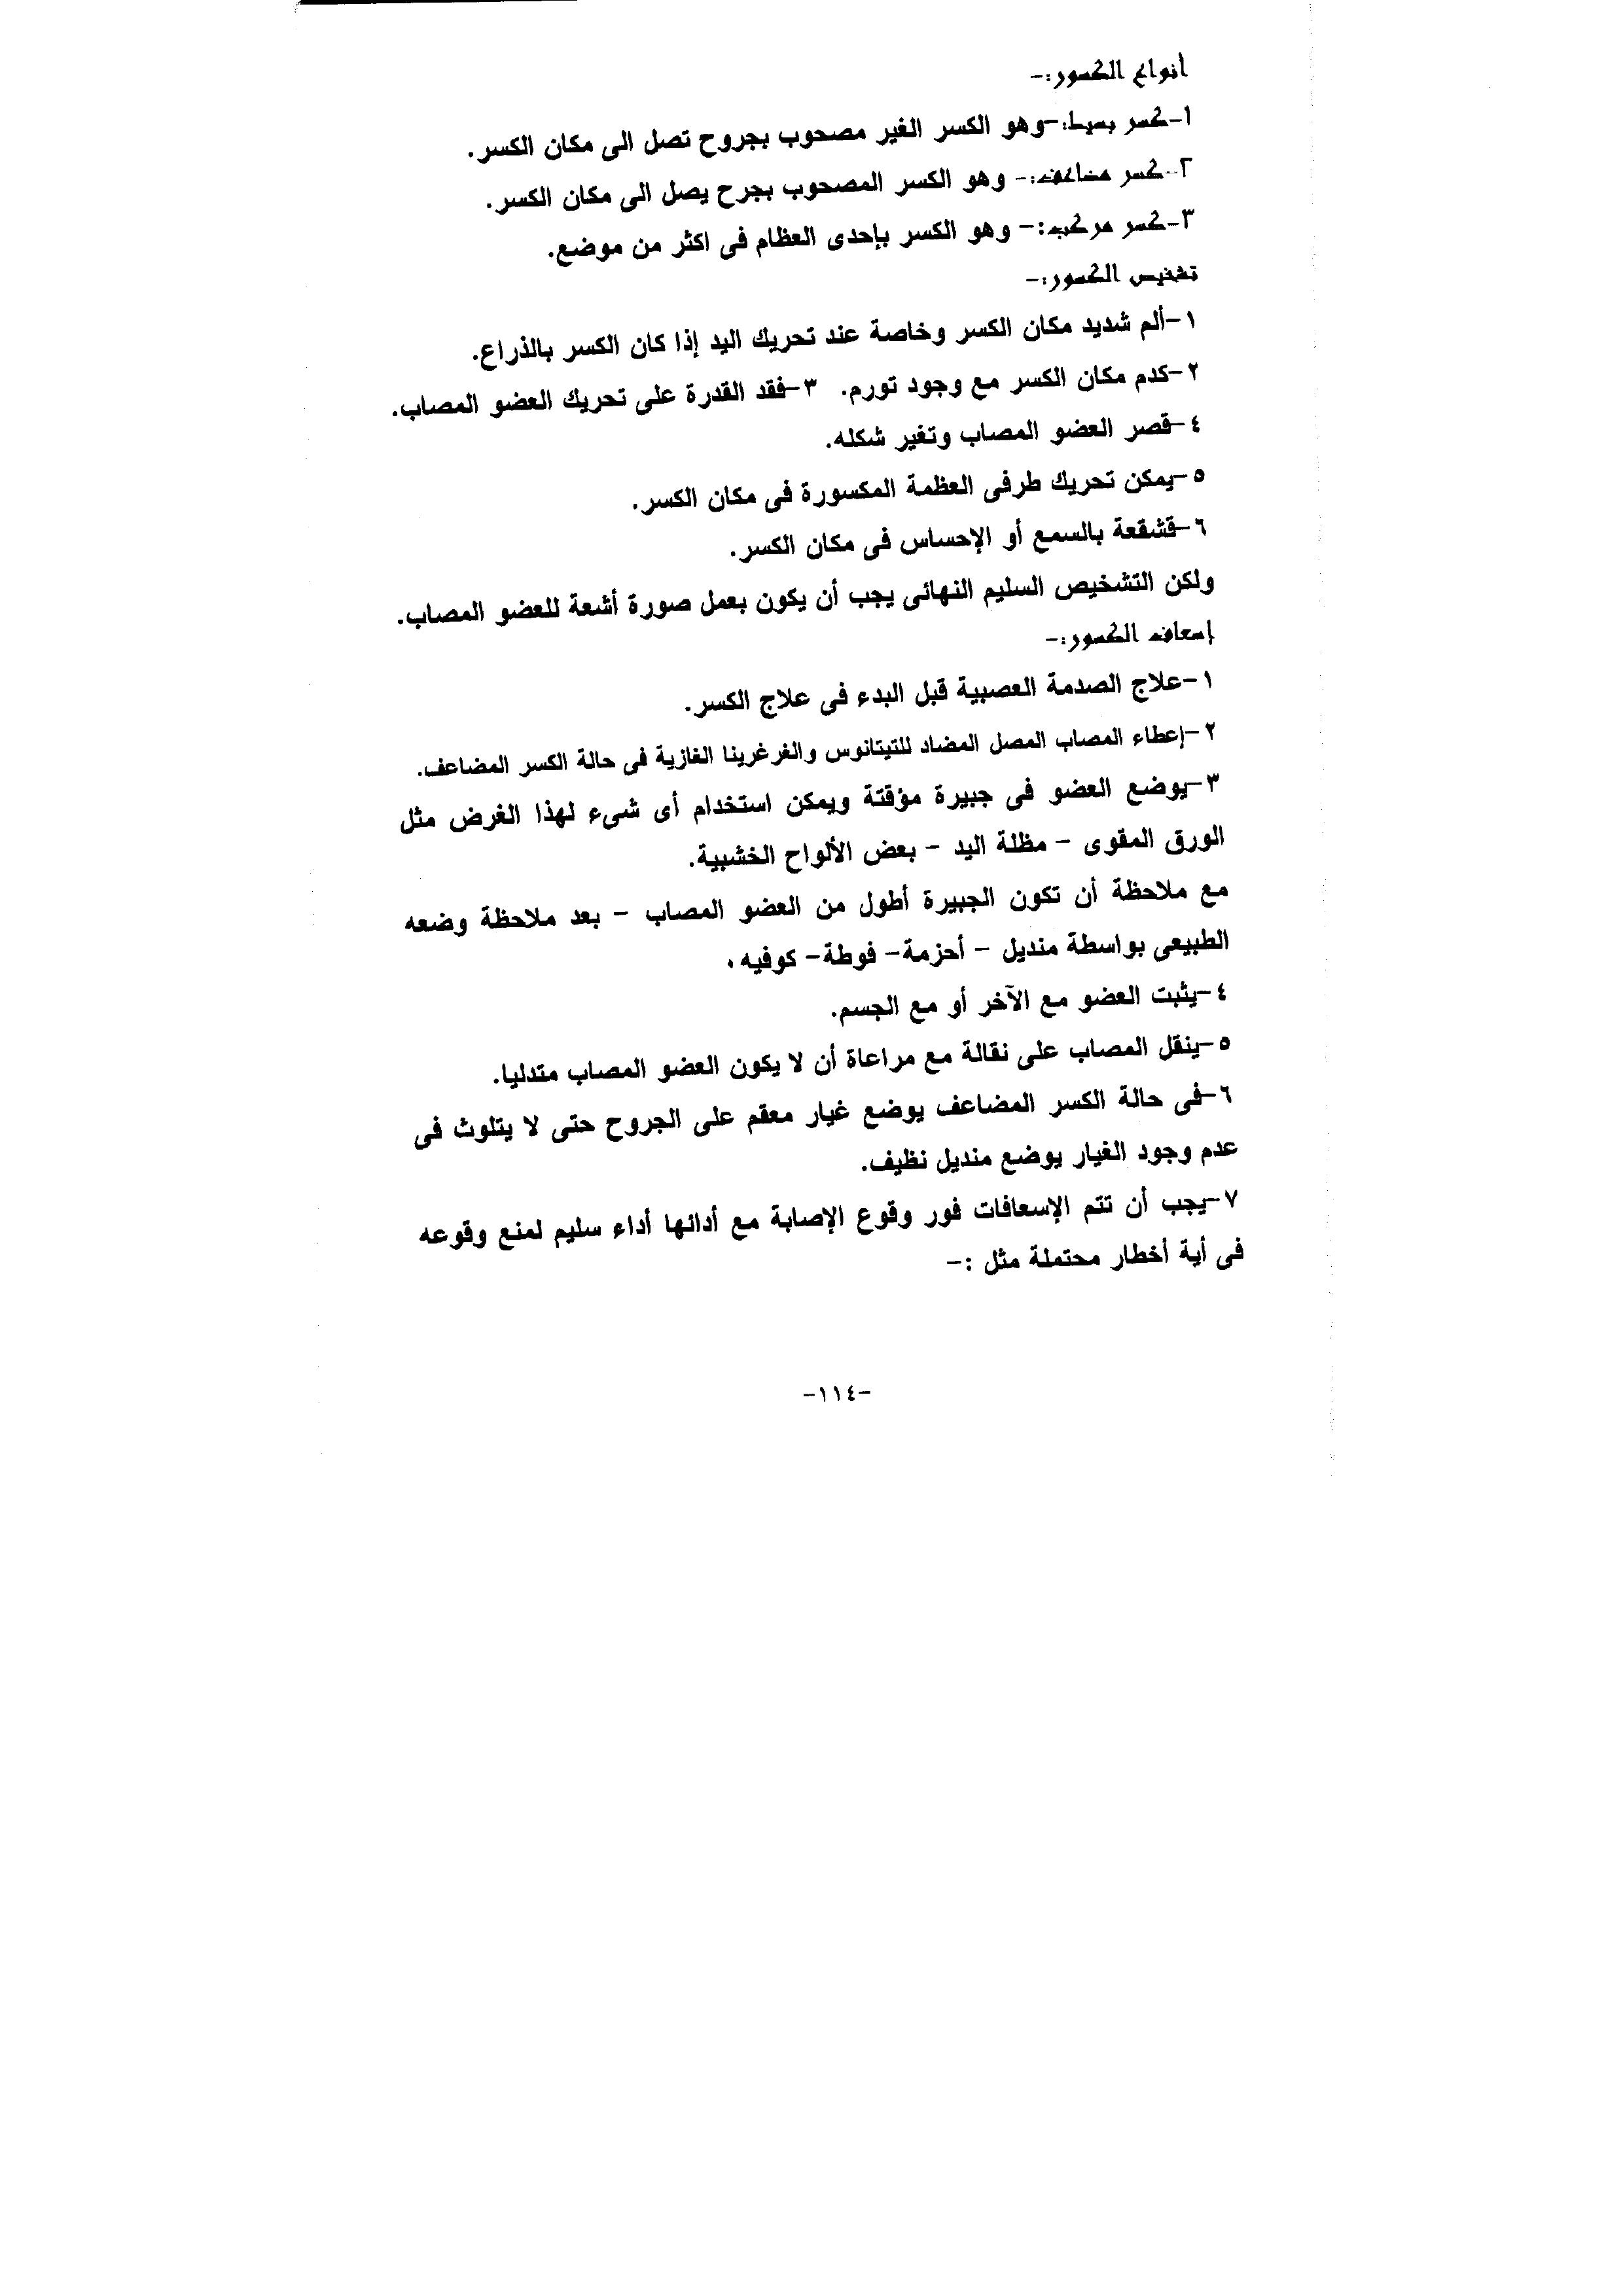 أنواع الكسور:-
١-كسر بسيط:-وهو الكسر الغير مصحوب بجروح تصل الى مكان الكسر.
٢-كسر مضاعف:- وهو الكسر المصحوب بجرح يصل الى مكان الكسر.
٣-كسر مركب:- وهو الكسر بإحدى العظام فى اكثر من موضع.
تشخيص الكسور:-
١-ألم شديد مكان الكسر وخاصة عند تحريك اليد إذا كان الكسر بالذراع.
٢-كدم مكان الكسر مع وجود تورم. ٣-فقد القدرة على تحريك العضو المصاب.
٤-قصر العضو المصاب وتغير شكله.
٥-يمكن تحريك طرفى العظمة المكسورة فى مكان الكسر.
٦-قشقعة بالسمع أو الإحساس فى مكان الكسر.
ولكن التشخيص السليم النهائى يجب أن يكون بعمل صورة أشعة للعضو المصاب.
إسعاف الكسور:-
١-علاج الصدمة العصبية قبل البدء فى علاج الكسر.
٢-إعطاء المصاب المصل المضاد للتيتانوس والغرغرينا الغازية فى حالة الكسر المضاعف.
٣-يوضع العضو فى جبيرة مؤقتة ويمكن استخدام أى شىء لهذا الغرض مثل
الورق المقوى - مظلة اليد - بعض الألواح الخشبية.
مع ملاحظة أن تكون الجبيرة أطول من العضو المصاب - بعد ملاحظة وضعه
الطبيعى بواسطة منديل - أحزمة- فوطة- كوفيه ٠
٤-يثبت العضو مع الآخر أو مع الجسم.
٥-ينقل المصاب على نقالة مع مراعاة أن لا يكون العضو المصاب متدليا.
٦-فى حالة الكسر المضاعف يوضع غيار معقم على الجروح حتى لا يتلوث فى
عدم وجود الغيار يوضع منديل نظيف.
٧-يجب أن تتم الإسعافات فور وقوع الإصابة مع أدائها أداء سليم لمنع وقوعه
فى أية أخطار محتملة مثل :-
-١١٤-